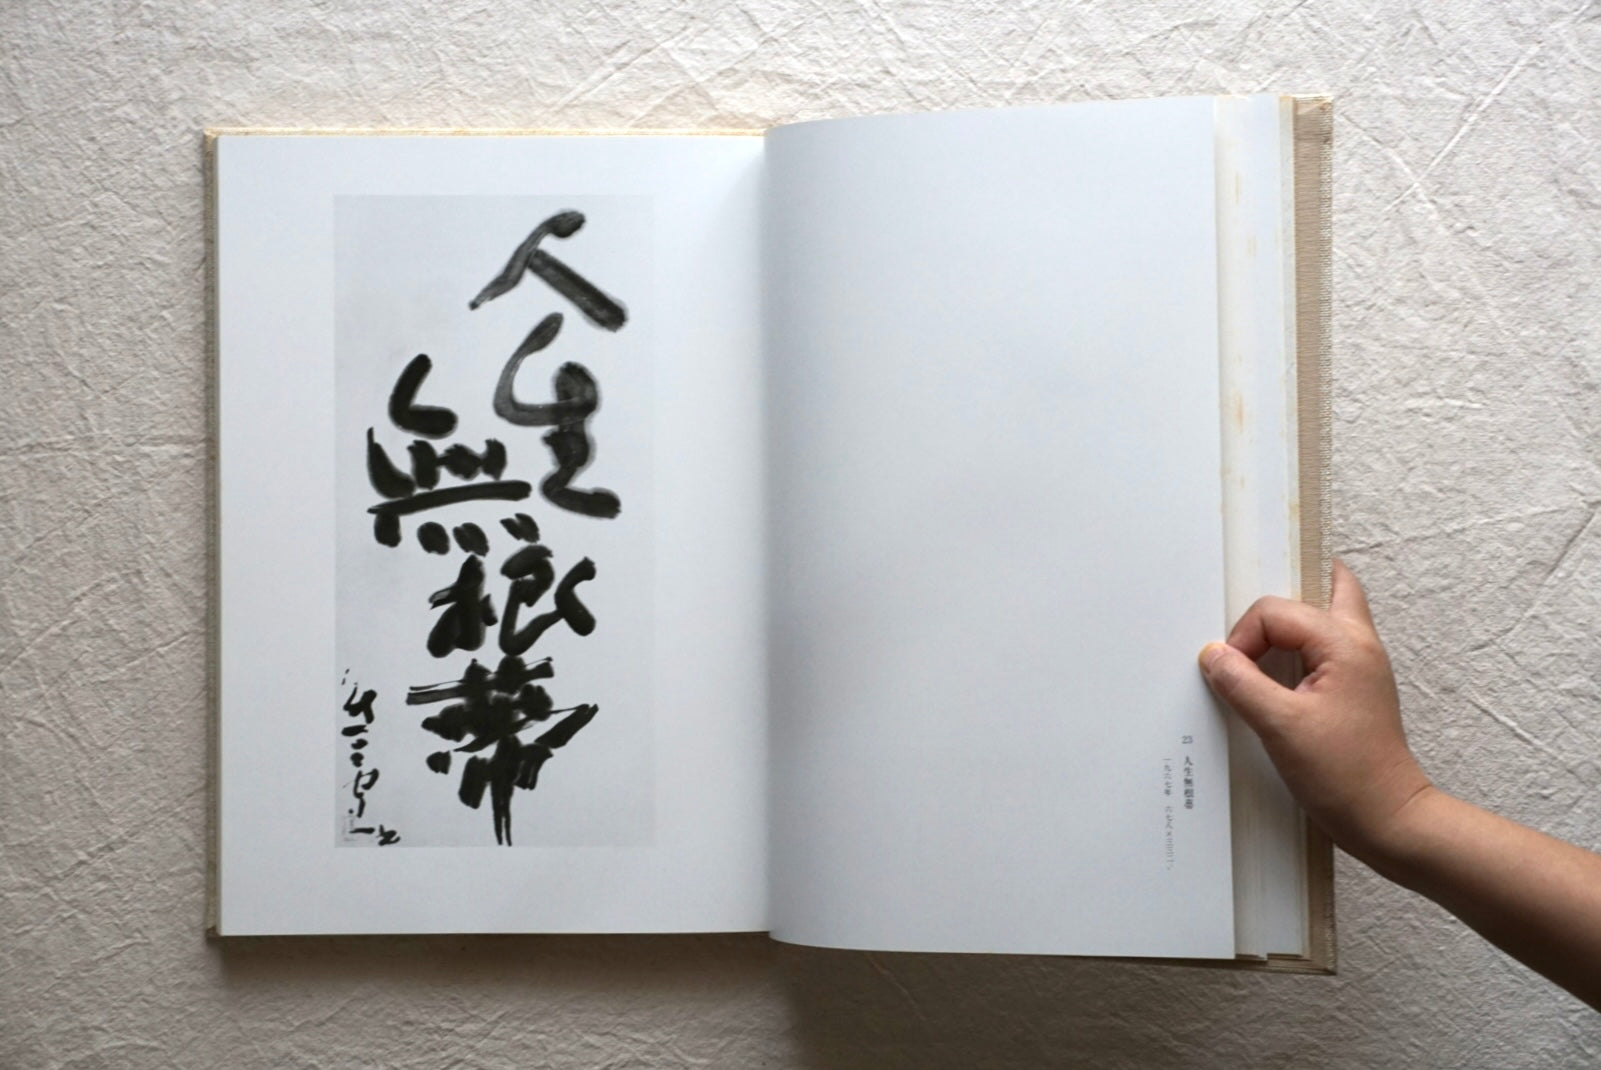 人生
無根蔕
23 人生無根蔕
一九六七年 六七八×三三二